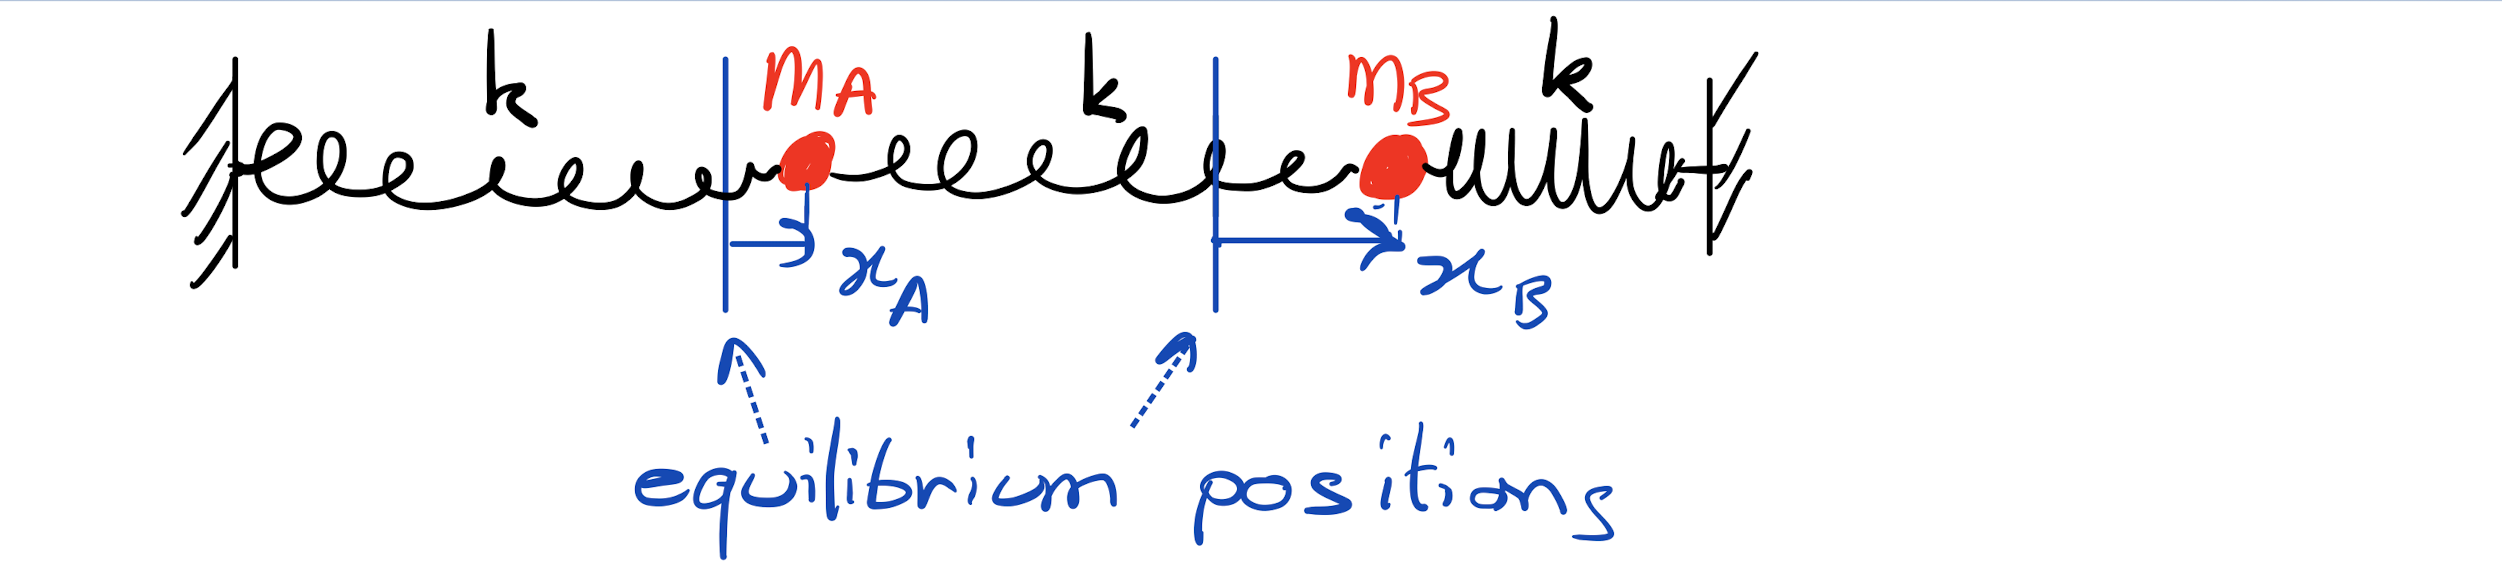 k m_A k m_B k
x_A x_B
equilibrium positions